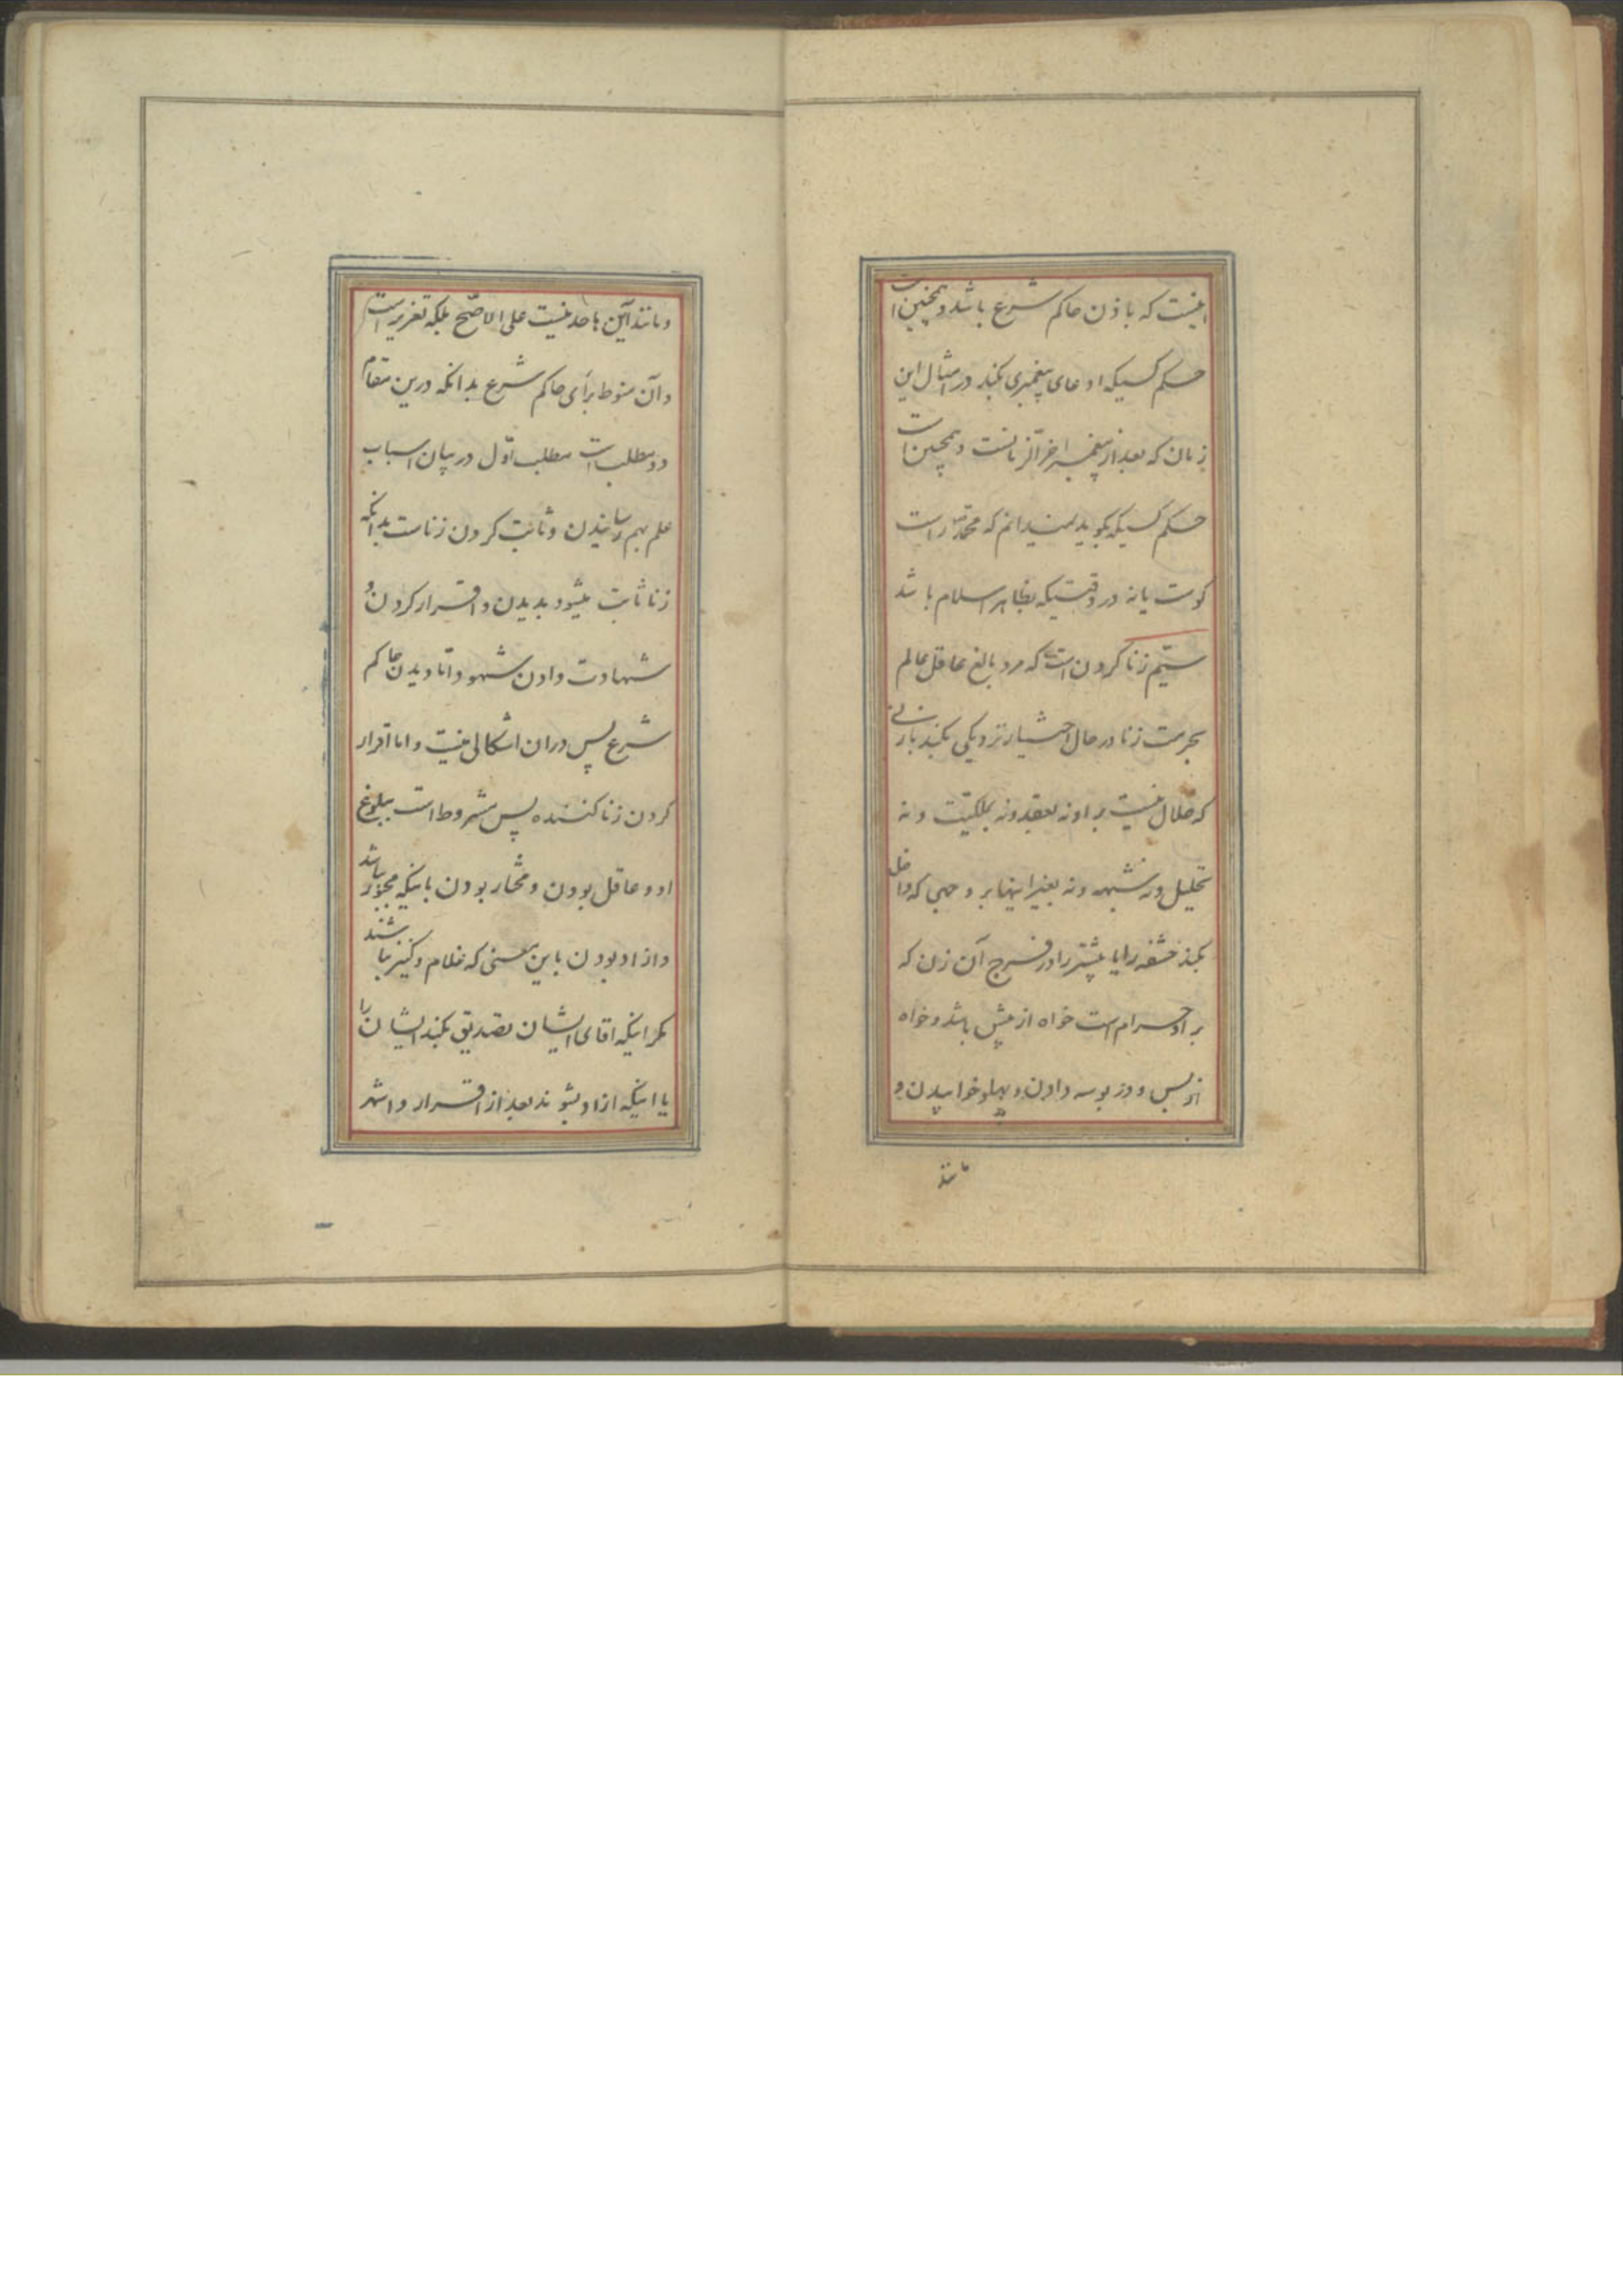 اینست که باذن حاکم شرع باشد و همچنین است
حکم کسیکه ادعای پیغمبری بکند در امثال این
زمان که بعد از پیغمبر اخرالزمانست و همچنین است
حکم کسیکه بکوید نمیدانم که محمد راست
کوست یا نه در وقتیکه بظاهر اسلام باشد
سیّم زنا کردن است که مرد بالغ عاقل عالم
بحرمت زنا در حال اختیار نزدیکی بکند با زنی
که حلال نیست بر او نه بعقد و نه بملکیّت و نه
تحلیل و نه شبهه و نه بغیر اینها بر وجهی که داخل
بکند حشفه را یا بیشتر را در فرج آن زن که
بر او حرام است خواه از پیش باشد و خواه
از پس و در بوسه دادن و پهلو خوابیدن و
مانند
و مانند این ها حد نیست علی الاصّح بلکه تعزیر است
و آن منوط برأی حاکم شرع بدانکه درین مقام
دو مطلب است مطلب اوّل در بیان اسباب
علم بهم رسانیدن و ثابت کردن زناست بدانکه
زنا ثابت میشود بدیدن و اقرار کردن و
شهادت دادن شهود و امّا دیدن حاکم
شرع پس دران اشکالی نیست و اما اقرار
کردن زنا کننده پس مشروط است ببلوغ
او و عاقل بودن و مختار بودن باینکه مجبور نباشد
و ازاد بودن باین معنی که غلام و کنیز نباشند
مکر اینکه اقای ایشان تصدیق بکند ایشان را
یا اینکه ازاد بشوند بعد از اقرار و اشهر